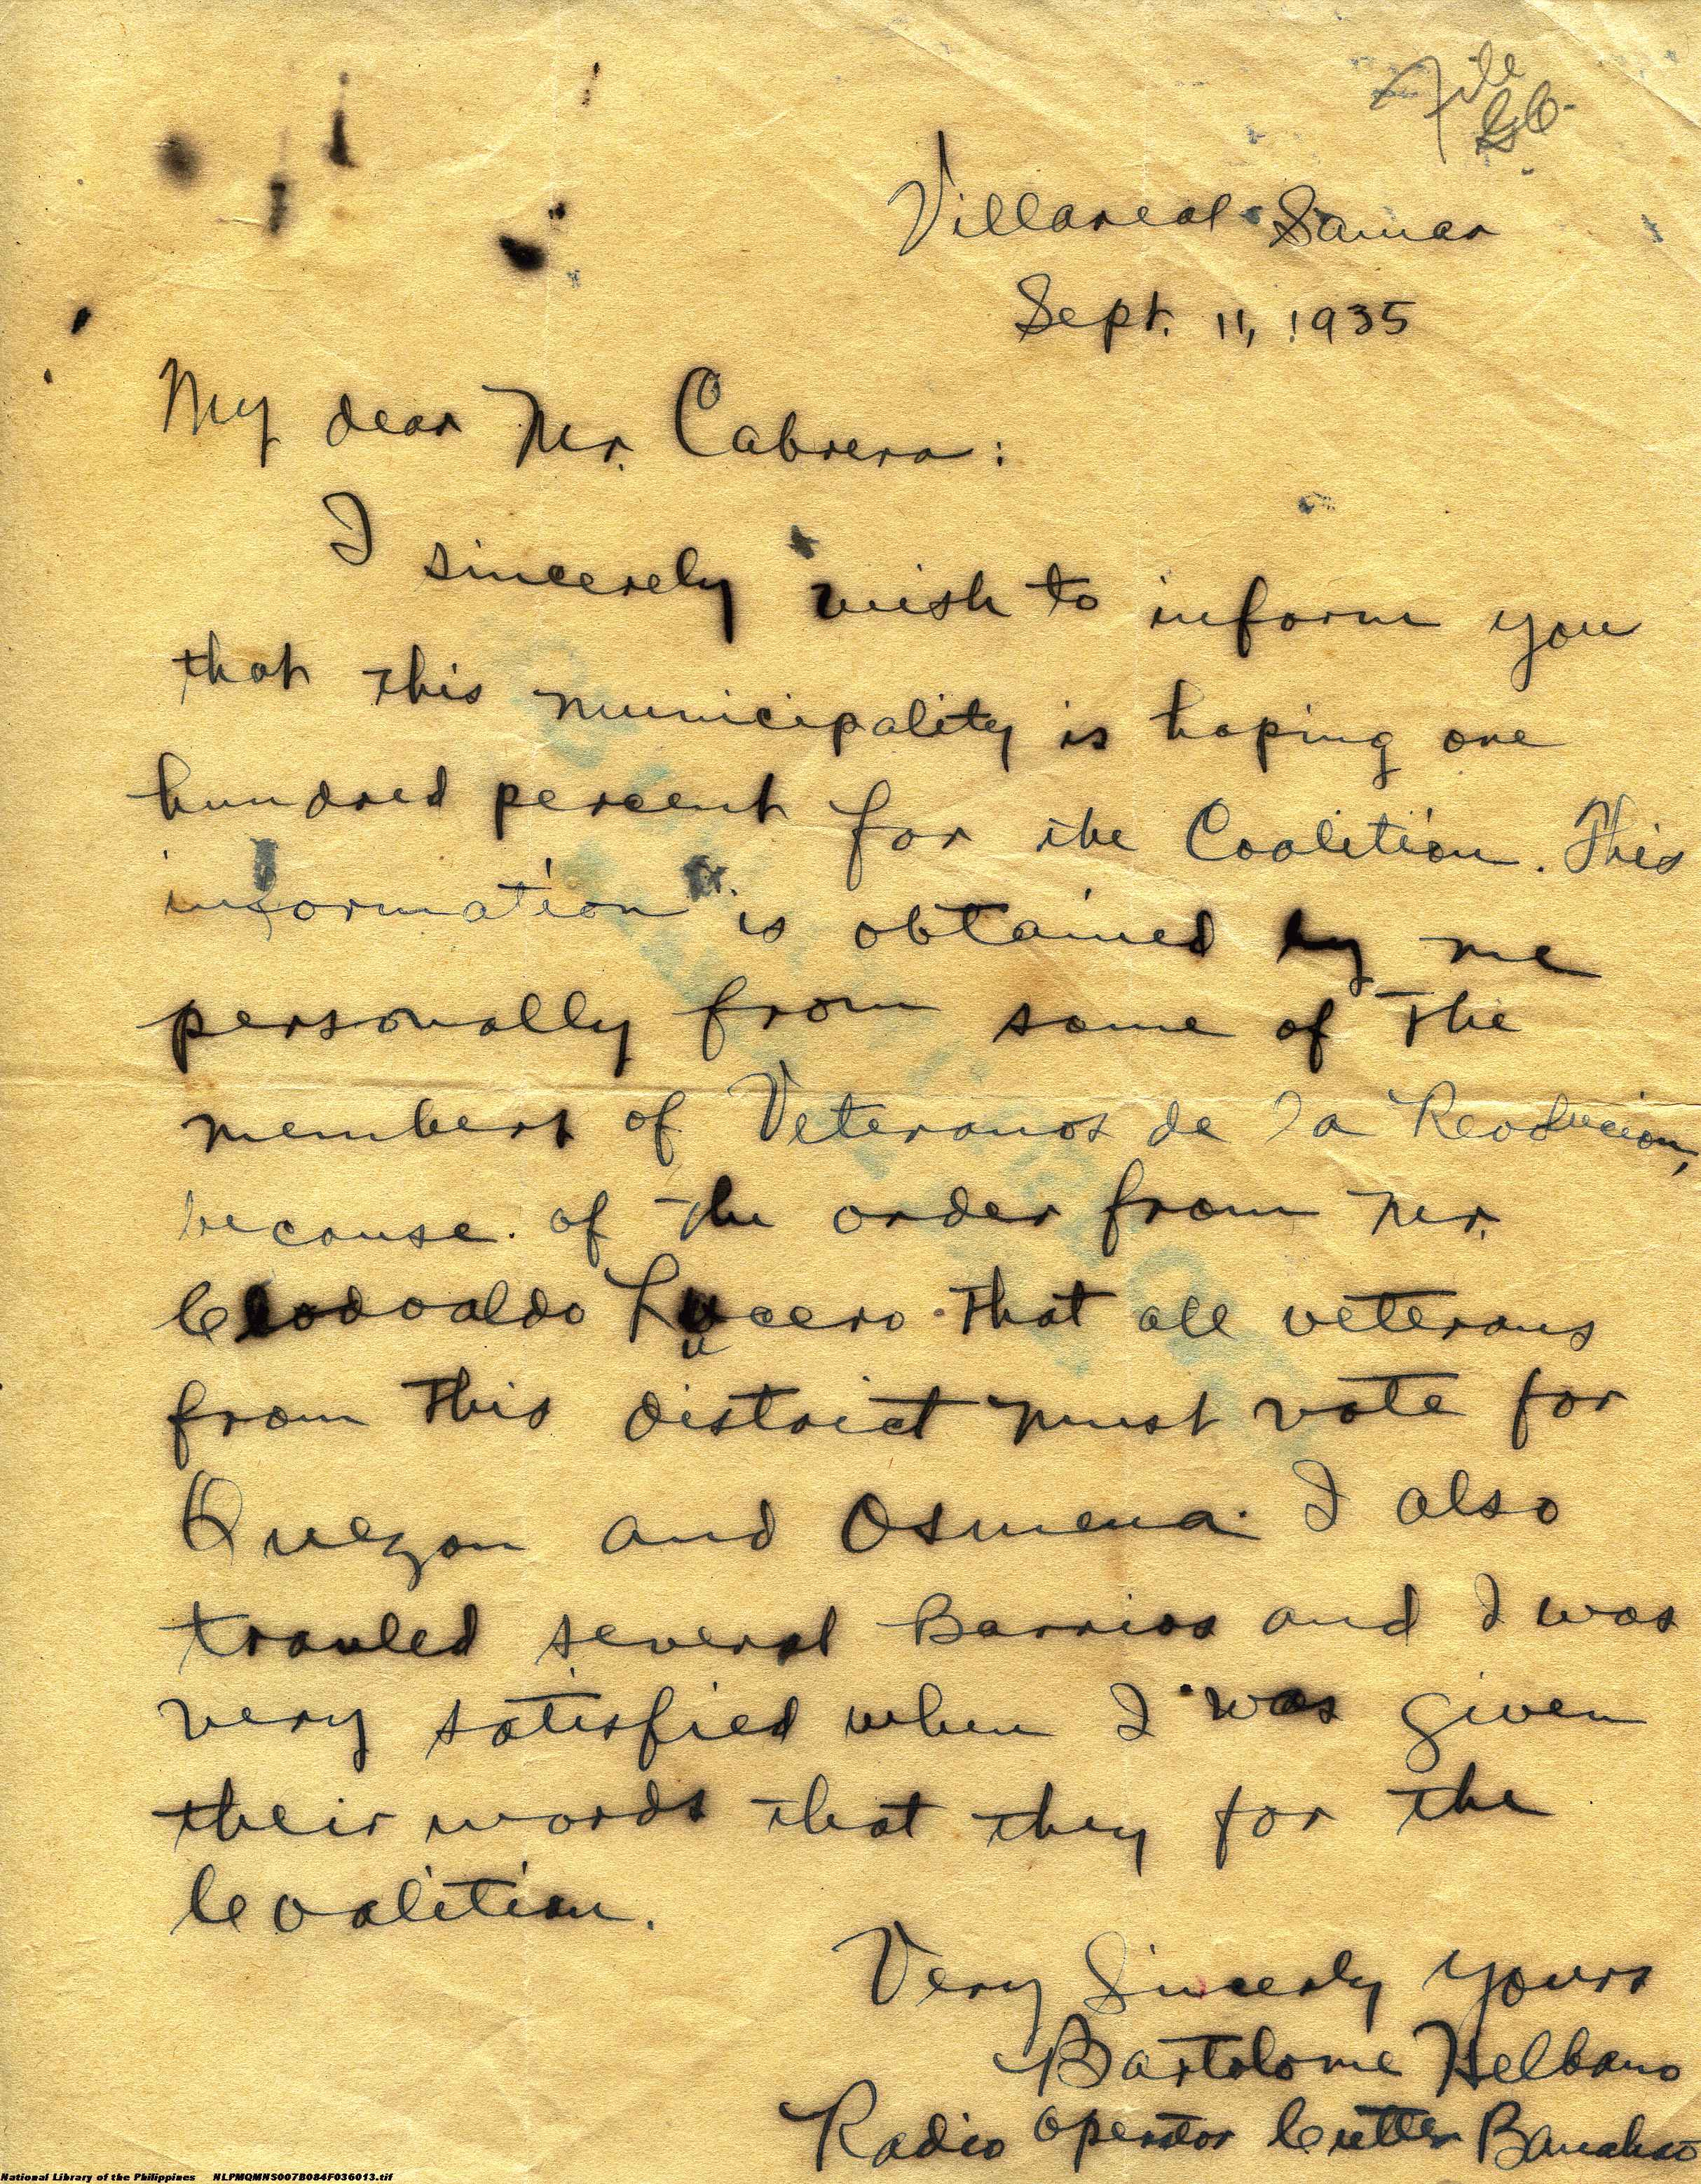 File
Villareal Samar
Sept. 11, 1935
My dear Mr. Cabrera:
I sincerely wish to inform you
that this municipality is hoping one
hundred percent for the Coalition. This
information is obtained by me
personally from some of the
members of Veteranos de la Revolucion,
because of the order from Mr.
Clodoaldo Lucero that all veterans
from this district must vote for
Quezon and Osmena. I also
travled several Barrios and I was
very satisfied when I was given
their words that they for the
Coalition.
Very Sincerly yours
Bartolome Helbano
Radio operator Cutter Banahao
National Library of the Philippines NLPMQMNS007B084F036013.tif